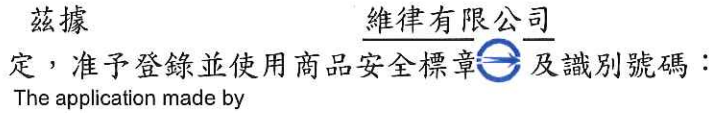 茲據 維律有限公司
定，准予登錄並使用商品安全標章 及識別號碼：
The application made by